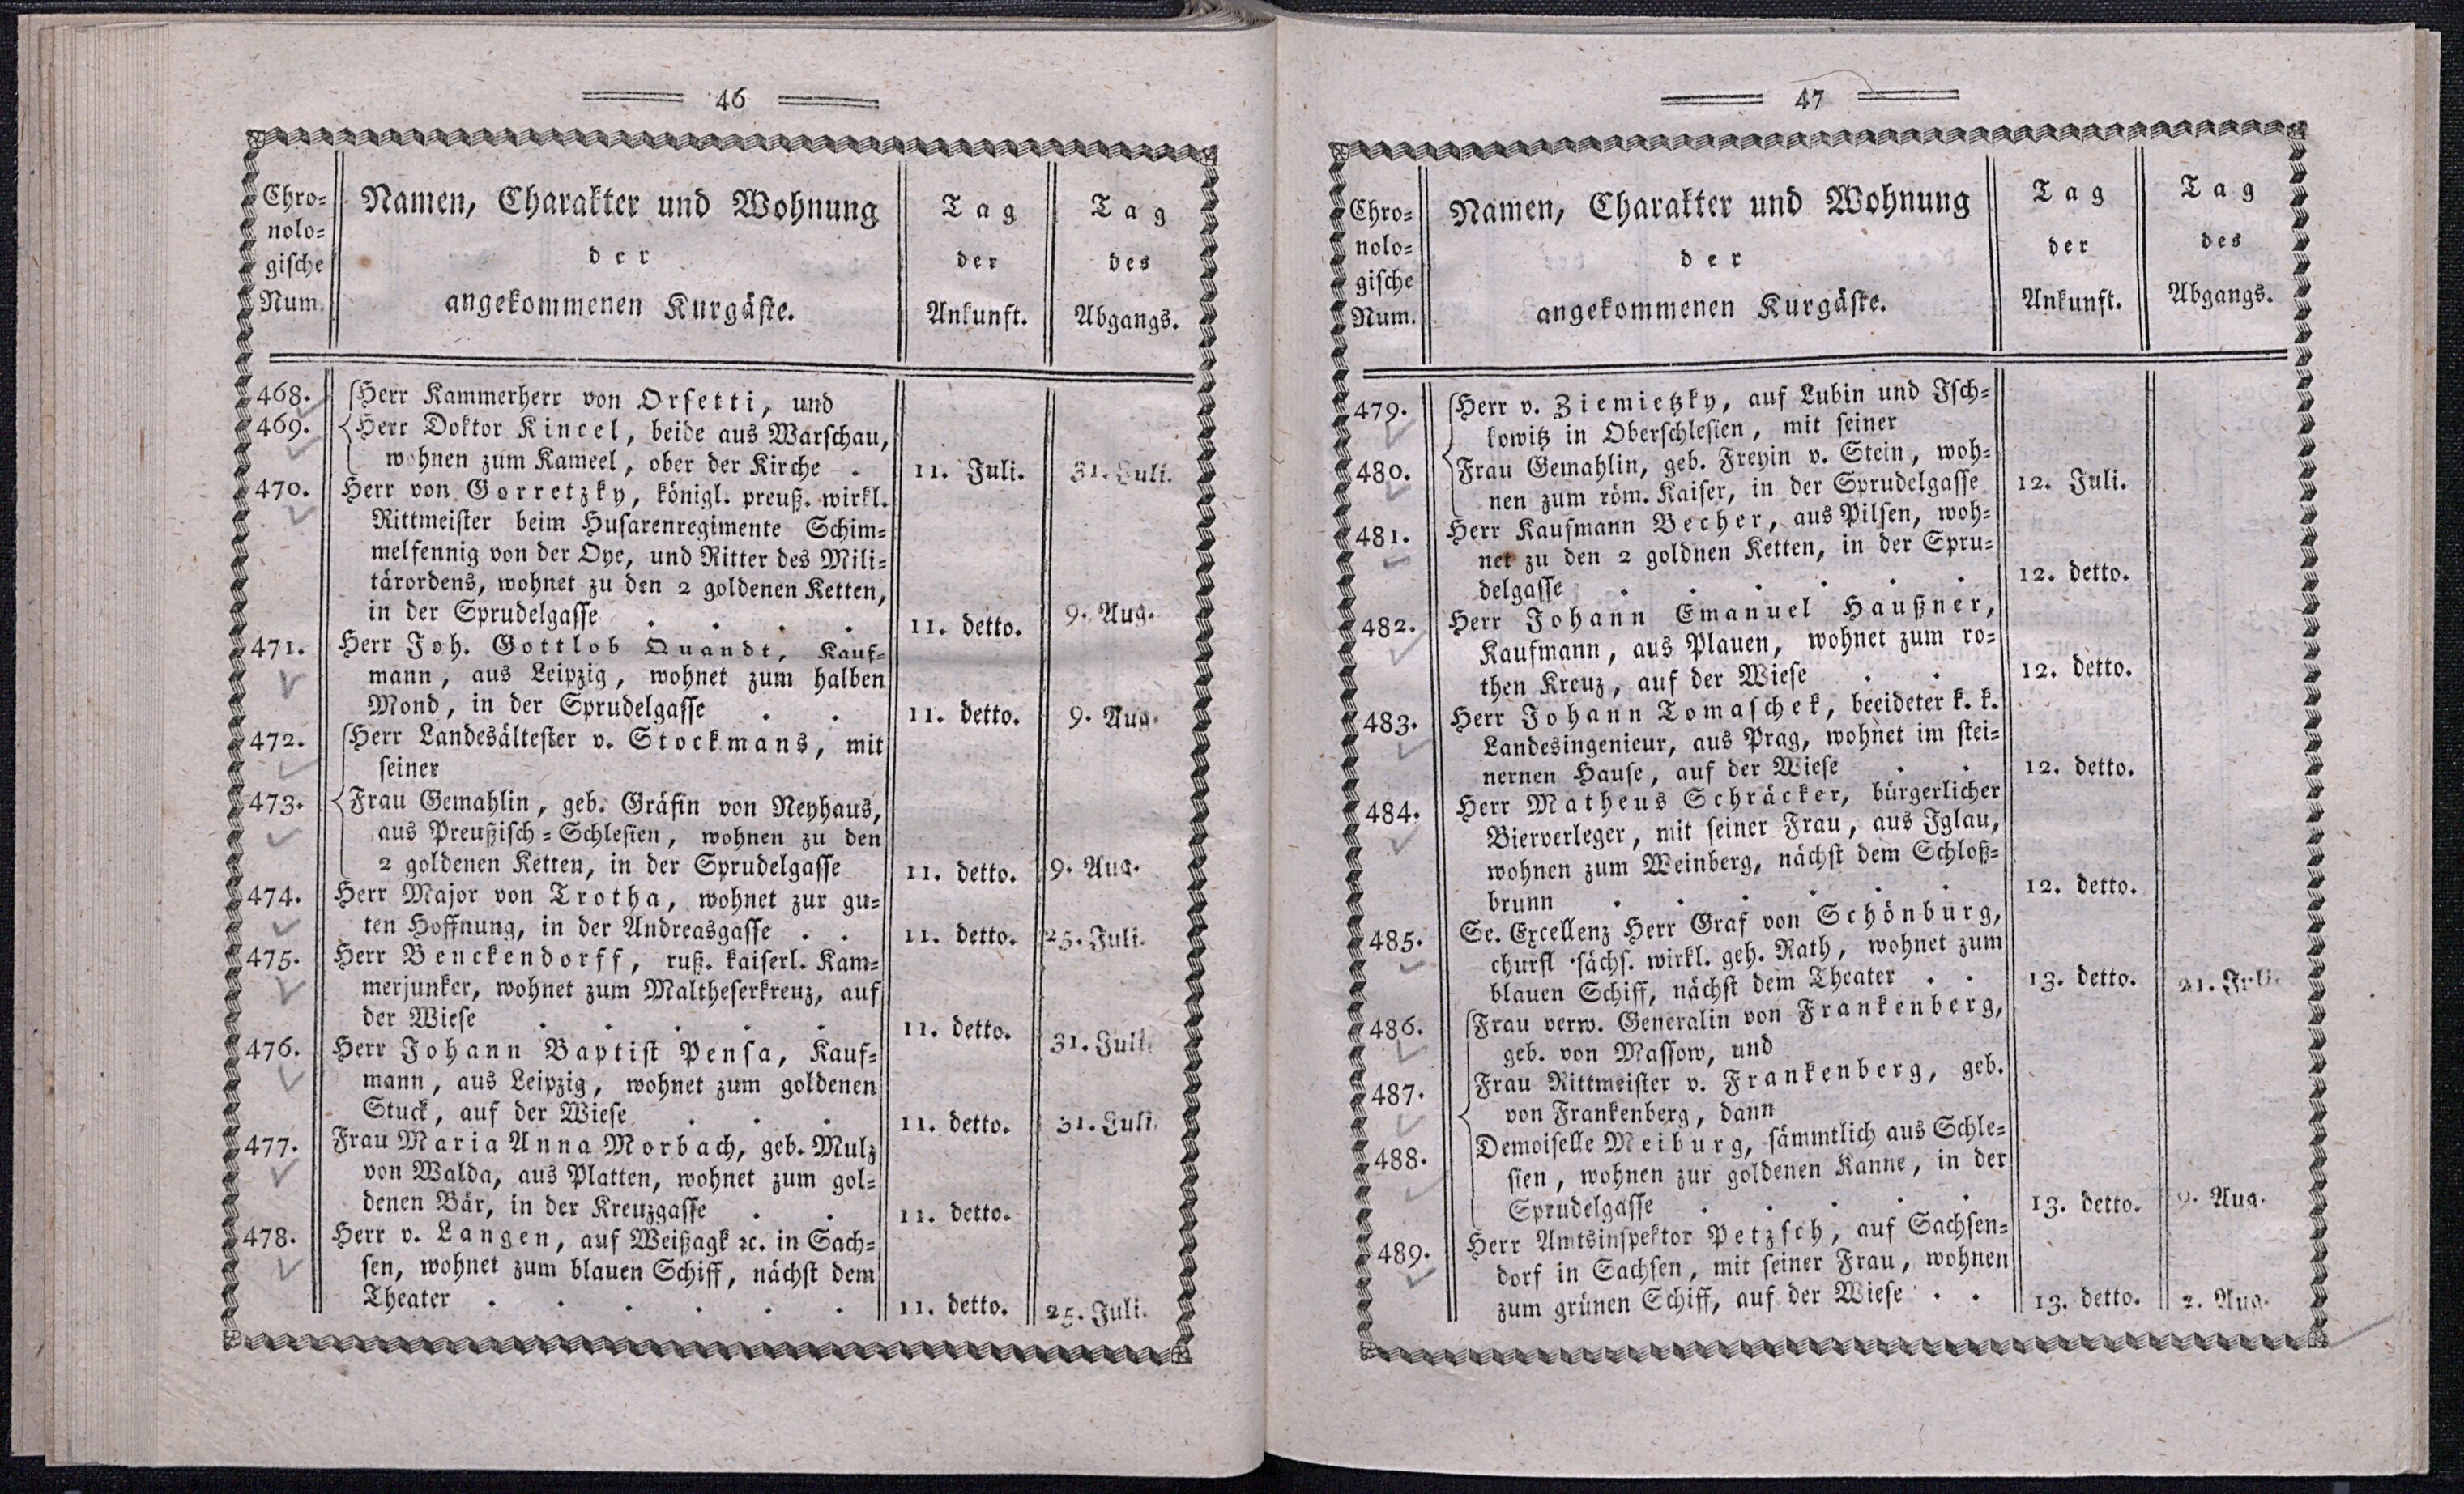 46
Chro-
nolo-
gische
Num.
Namen, Charakter und Wohnung
der
angekommenen Kurgäste.
Tag
der
Ankunft.
Tag
des
Abgangs.
468. Herr Kammerherr von Orsetti, und
469. Herr Doktor Kincel, beide aus Warschau,
wohnen zum Kameel, ober der Kirche . 11. Juli. 31. Juli.
470. Herr von Gorretzky, königl. preuß. wirkl.
Rittmeister beim Husarenregimente Schim-
melfennig von der Oye, und Ritter des Mili-
tärordens, wohnet zu den 2 goldenen Ketten,
in der Sprudelgasse . . . . 11. detto. 9. Aug.
471. Herr Joh. Gottlob Quandt, Kauf-
mann, aus Leipzig, wohnet zum halben
Mond, in der Sprudelgasse . . 11. detto. 9. Aug.
472. Herr Landesältester v. Stockmans, mit
seiner
473. Frau Gemahlin, geb. Gräfin von Neyhaus,
aus Preußisch-Schlesien, wohnen zu den
2 goldenen Ketten, in der Sprudelgasse 11. detto. 9. Aug.
474. Herr Major von Trotha, wohnet zur gu-
ten Hoffnung, in der Andreasgasse . . 11. detto. 25. Juli.
475. Herr Benckendorff, ruß. kaiserl. Kam-
merjunker, wohnet zum Maltheserkreuz, auf
der Wiese . . . . . 11. detto. 31. Juli.
476. Herr Johann Baptist Pensa, Kauf-
mann, aus Leipzig, wohnet zum goldenen
Stuck, auf der Wiese . . . 11. detto. 31. Juli.
477. Frau Maria Anna Morbach, geb. Mulz
von Walda, aus Platten, wohnet zum gol-
denen Bär, in der Kreuzgasse . . 11. detto.
478. Herr v. Langen, auf Weißagk ꝛc. in Sach-
sen, wohnet zum blauen Schiff, nächst dem
Theater . . . . . . 11. detto. 25. Juli.
47
Chro-
nolo-
gische
Num.
Namen, Charakter und Wohnung
der
angekommenen Kurgäste.
Tag
der
Ankunft.
Tag
des
Abgangs.
479. Herr v. Ziemietzky, auf Lubin und Jsch-
kowitz in Oberschlesien, mit seiner
480. Frau Gemahlin, geb. Freyin v. Stein, woh-
nen zum röm. Kaiser, in der Sprudelgasse 12. Juli.
481. Herr Kaufmann Becher, aus Pilsen, woh-
net zu den 2 goldnen Ketten, in der Spru-
delgasse . . . . . . 12. detto.
482. Herr Johann Emanuel Haußner,
Kaufmann, aus Plauen, wohnet zum ro-
then Kreuz, auf der Wiese . . 12. detto.
483. Herr Johann Tomaschek, beeideter k. k.
Landesingenieur, aus Prag, wohnet im stei-
nernen Hause, auf der Wiese . . 12. detto.
484. Herr Matheus Schräcker, bürgerlicher
Bierverleger, mit seiner Frau, aus Jglau,
wohnen zum Weinberg, nächst dem Schloß-
brunn . . . . . . 12. detto.
485. Se. Excellenz Herr Graf von Schönburg,
churfl sächs. wirkl. geh. Rath, wohnet zum
blauen Schiff, nächst dem Theater . . 13. detto. 21. Juli.
486. Frau verw. Generalin von Frankenberg,
geb. von Massow, und
487. Frau Rittmeister v. Frankenberg, geb.
von Frankenberg, dann
488. Demoiselle Meiburg, sämmtlich aus Schle-
sien, wohnen zur goldenen Kanne, in der
Sprudelgasse . . . . . 13. detto. 9. Aug.
489. Herr Amtsinspektor Petzsch, auf Sachsen-
dorf in Sachsen, mit seiner Frau, wohnen
zum grünen Schiff, auf der Wiese . . 13. detto. 2. Aug.